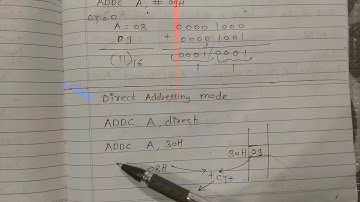 ADDC A, # 09H
CY=0
A = 08 0000 1000
09 + 0000 1001
(11)16 0001 0001
1 1
Direct Addressing mode
ADDC A, direct
ADDC A, 30H
30H 09
08H + CY+